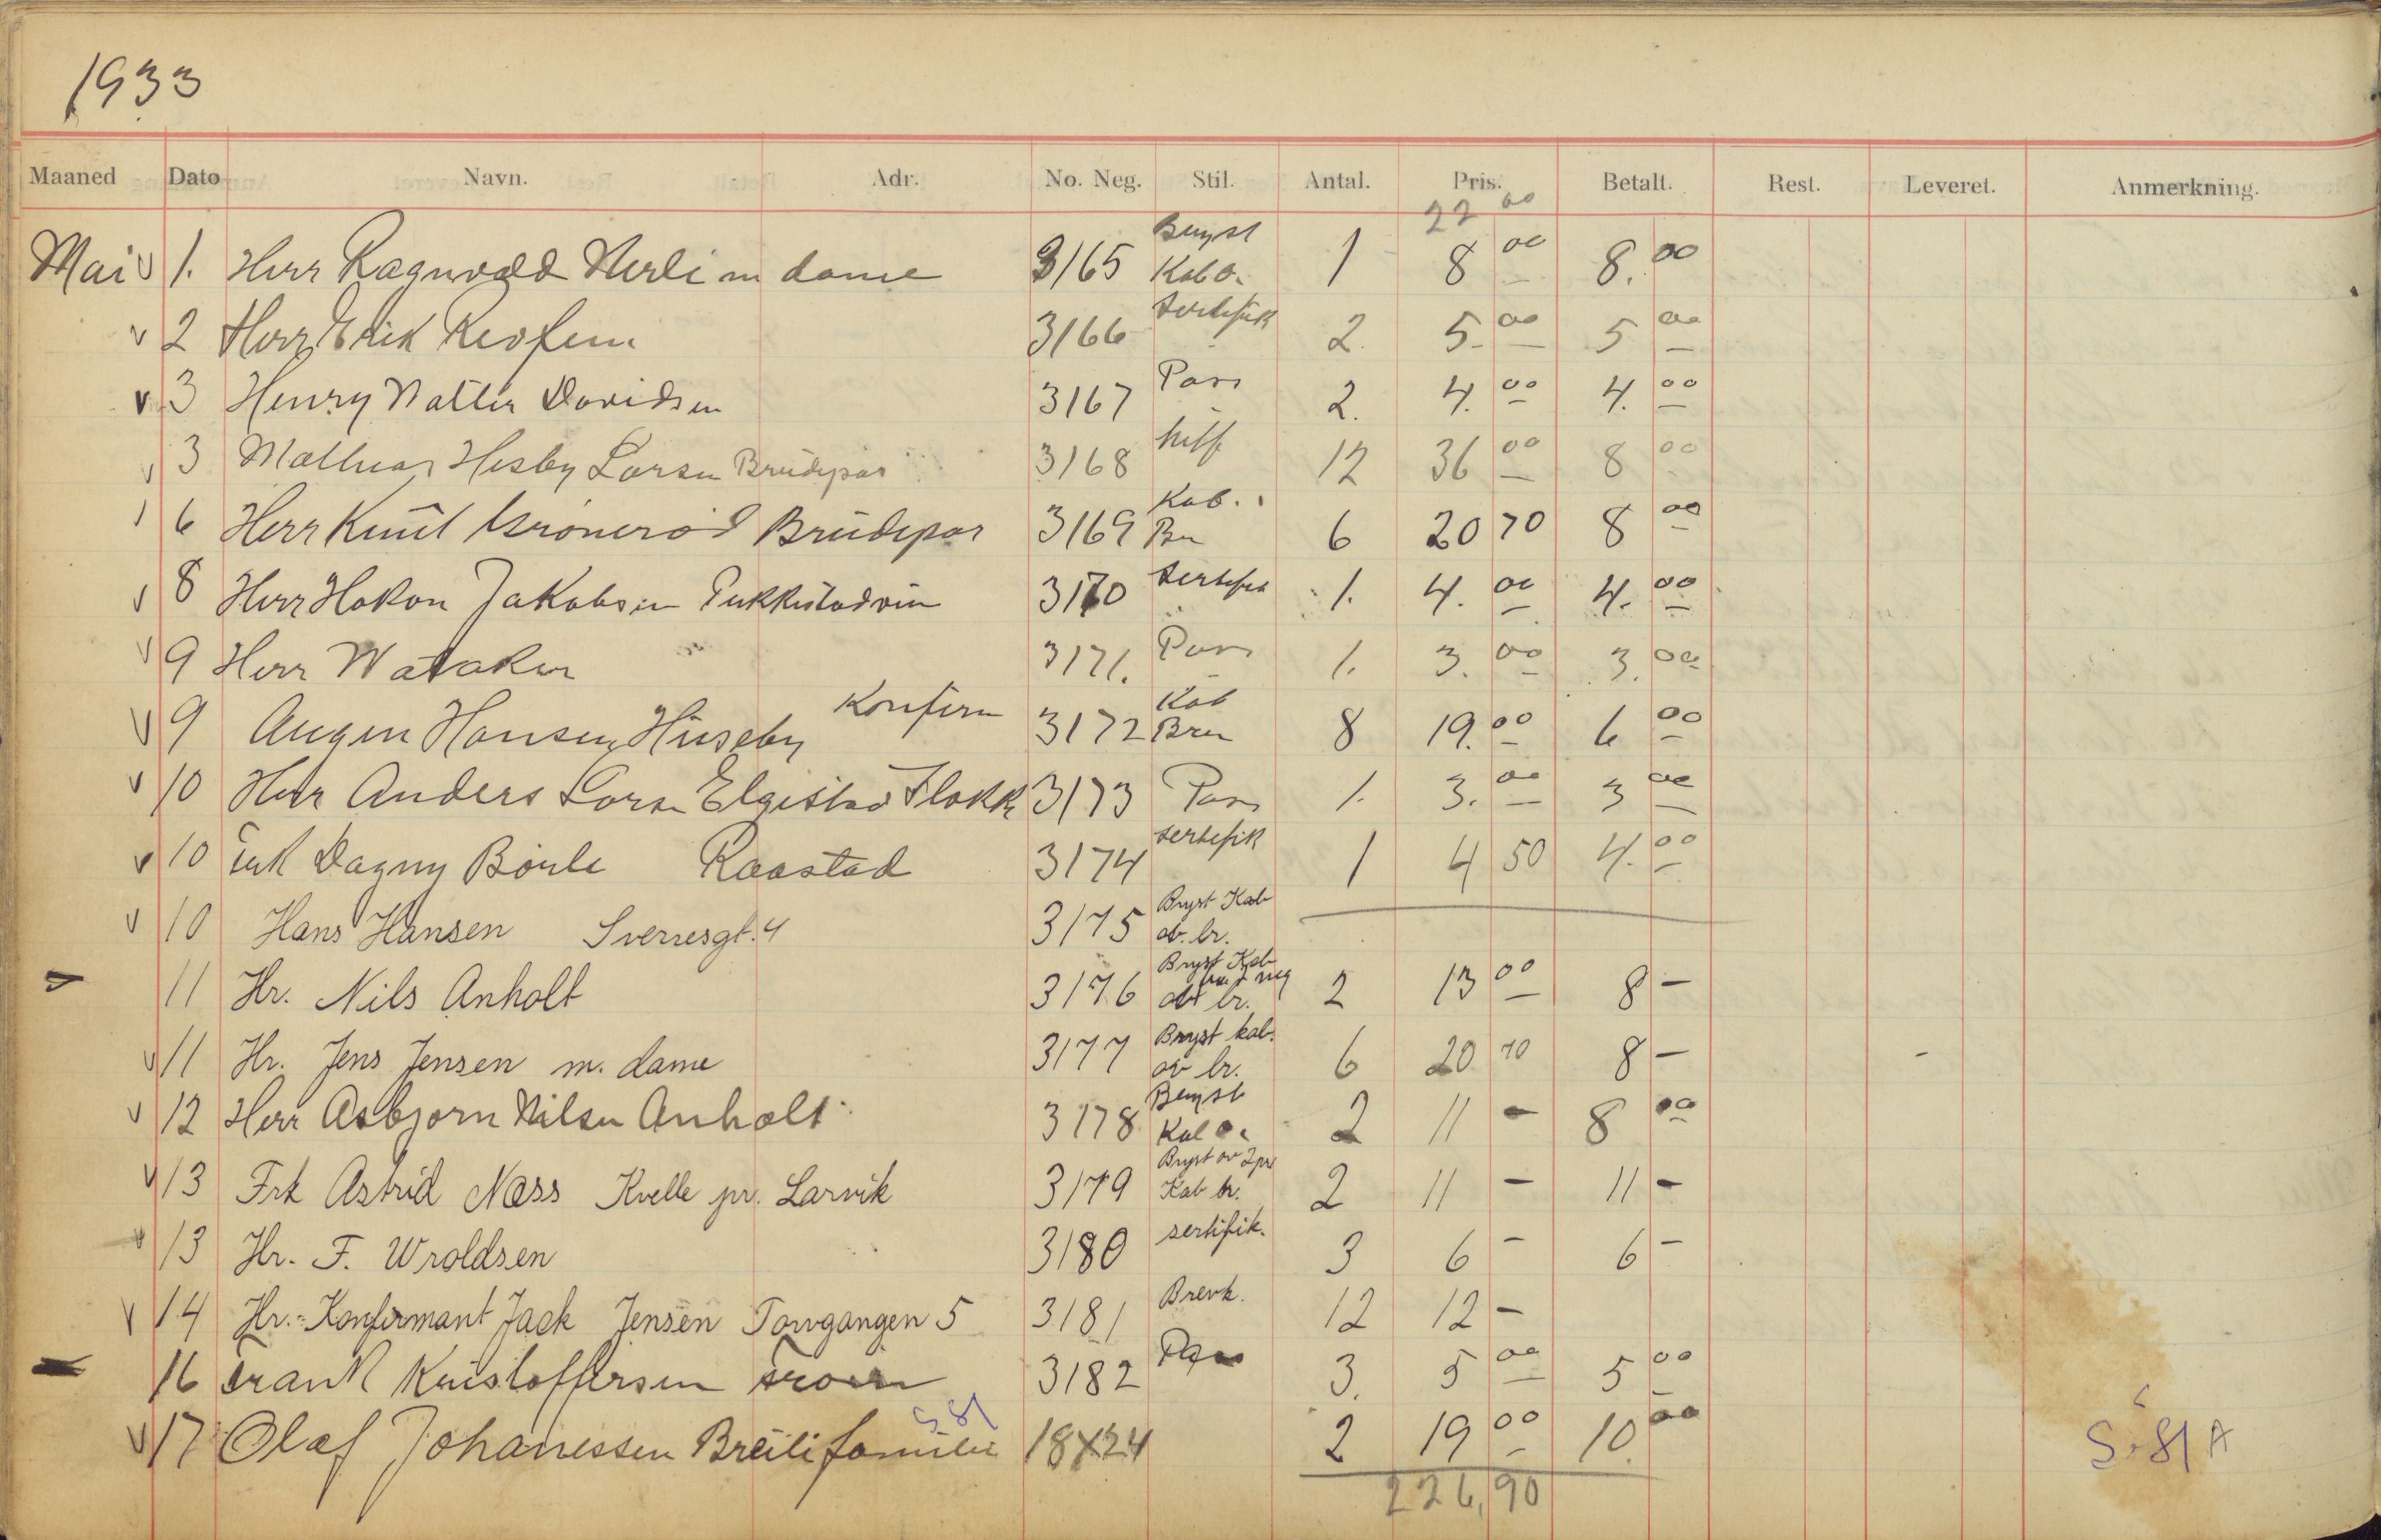 1933
Maaned Dato Navn. Adr. No. Neg. Stil. Antal. Pris. Betalt. Rest. Leveret. Anmerkning.
22 00
Mai v 1. Herr Ragnvald Herli m dame 3165 Bryst Kab o. 1 8 00 8. 00
v 2 Herr Erik 3166 Sertifik 2. 5 00 5 00
v 3 Henry Walter Davidsen 3167 Pass 2. 4. 00 4. 00
v 3 Mathias Hesby Larsen Brudepar 3168 12 36 00 8 00
6 Herr Knut Grönerød Brudepar 3169 Kab. Br 6 20 70 8 00
v 8 Herr Hakon Jakobsen 3170 sertifik 1. 4. 00 4. 00
v 9 Herr Wataker 3171. Pass 1. 3. 00 3. 00
v 9 Hansen Huseby Konfirm 3172 Kab Bru 8 19. 00 6 00
v 10 Herr Anders Larsen Elgistad Flokk 3173 Pass 1. 3. 00 3 00
v 10 Frk Dagny Raastad 3174 sertifik 1 4 50 4. 00
v 10 Hans Hansen Sverresgt. 4 3175 Bryst Kab ov. br.
11 Hr. Nils Anholt 3176 Bryst Kab neg br. 2 13 00 8 –
v 11 Hr. Jens Jensen m. dame 3177 Bryst kab. ov br. 6 20 70 8 –
v 12 Herr Asbjorn Nilsen Anholt 3178 Bryst Kab 2 11 – 8 00
v 13 Frk Astrid Næss Kvelle pr. Larvik 3179 Bryst ov 2 pr Kab br. 2 11 – 11 –
v 13 Hr. F. Wroldsen 3180 sertifik. 3 6 – 6 –
v 14 Hr. Konfirmant Jack Jensen Torvgangen 5 3181 Brevk. 12 12 –
16 Frank Kristoffersen 3182 Pass 3. 5 00 5 00
S 81
v 17 Olaf Johanessen familie 18X24 2 19 00 10. 00 S. 81 A
226,90